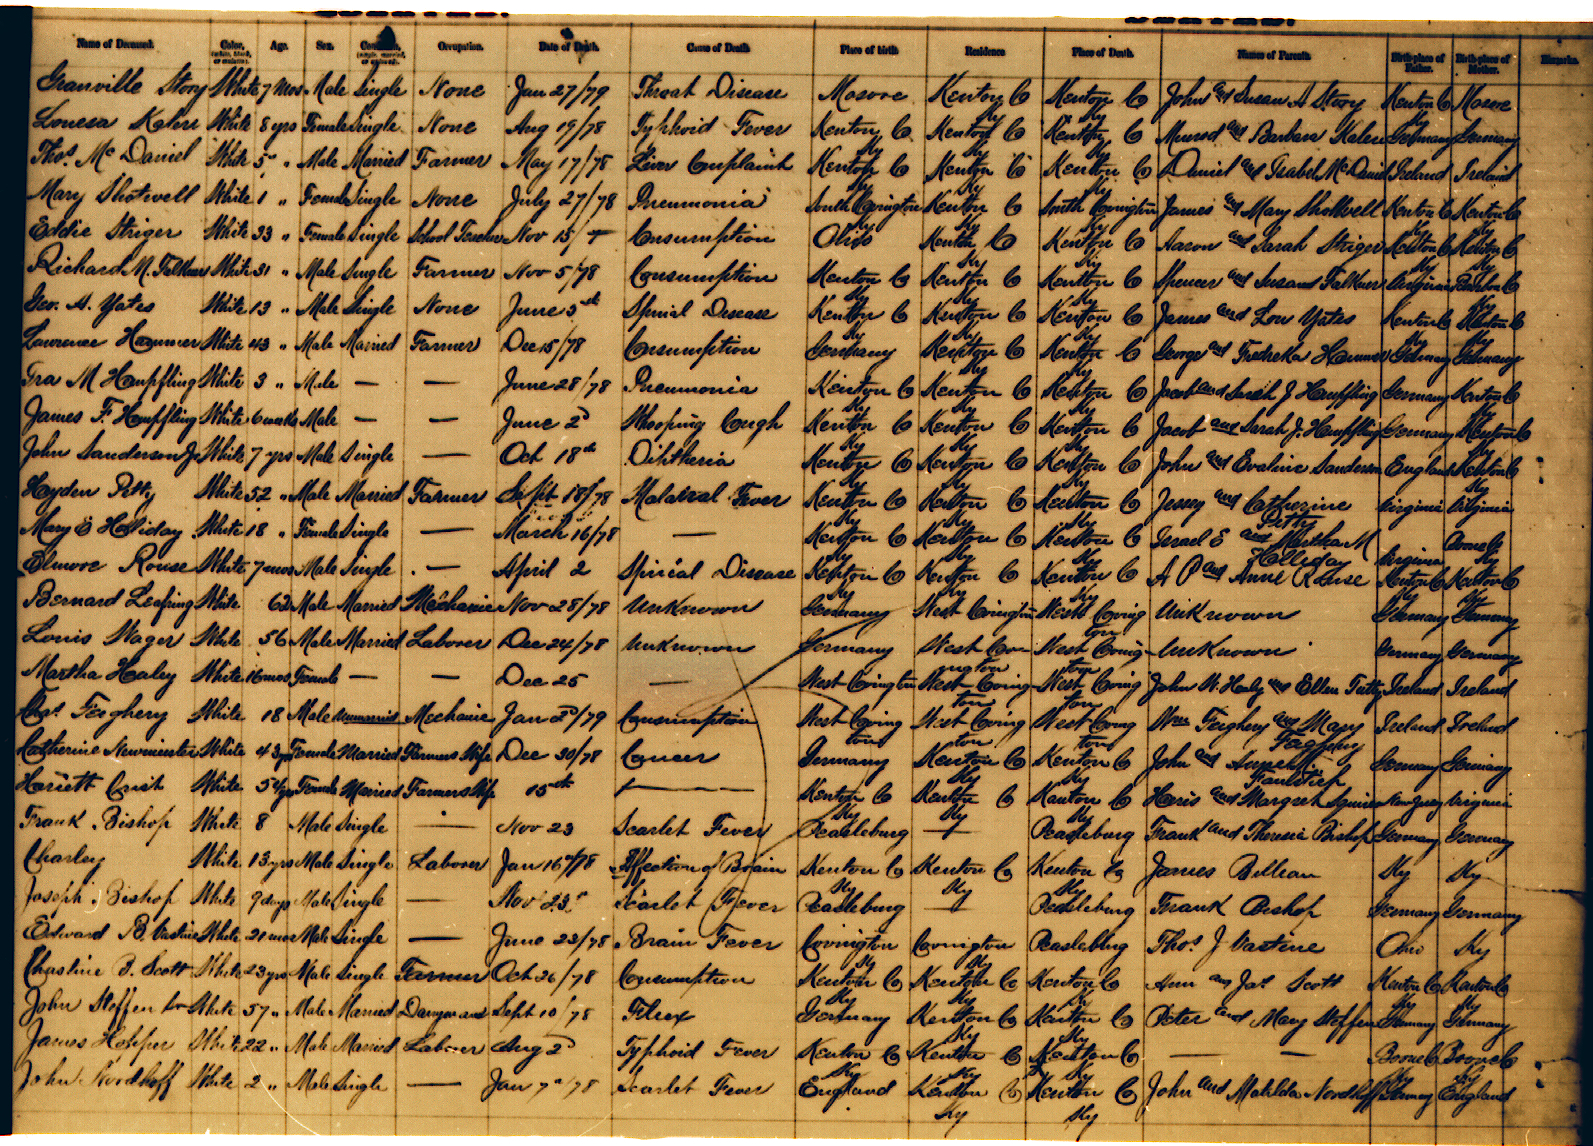 Name of Deceased. Color, (white, black, or mulatto). Age. Sex. Condition, (single, married, or widowed). Occupation. Date of Death. Cause of Death. Place of birth. Residence. Place of Death. Names of Parents. Birth-place of Father. Birth-place of Mother. Remarks.
Granville Story White 7 Mos Male Single None Jan 27/79 Throat Disease Kenton Co Ky Kenton Co Ky John and Susan A Story Kenton Co Ky
Louesa White 8 yrs Female Single None Aug 19/78 Typhoid Fever Kenton Co Ky Kenton Co Ky Kenton Co Ky and Barbara Germany Germany
Thos. Mc Daniel White 5 " Male Married Farmer May 17/78 Liver Complaint Kenton Co Ky Kenton Co Ky Kenton Co Ky Daniel and Isabel McDaniel Ireland Ireland
Mary Shotwell White 1 " Female Single None July 27/78 Pneumonia South Covington Kenton Co South Covington James and Mary Shotwell Kenton Co Ky Kenton Co Ky
Eddie Striger White 33 " Female Single School Teacher Nov 15 Consumption Ohio Kenton Co Ky Kenton Co Ky Aaron and Sarah Striger Kenton Co Ky Kenton Co Ky
Richard M. Falkner White 31 " Male Single Farmer Nov 5/78 Consumption Kenton Co Ky Kenton Co Ky Kenton Co Ky Spencer and Susan Falkner Virginia Co Ky
Geo. A. Yates White 13 " Male Single None June 5th Spinal Disease Kenton Co Ky Kenton Co Ky Kenton Co Ky James and Lou Yates Kenton Co Ky Kenton Co Ky
Lawrence Hammer White 43 " Male Married Farmer Dec 15/78 Consumption Germany Kenton Co Ky Kenton Co Ky George and Fredreka Hammer Germany Germany
Ira M Haupfling White 3 " Male — — June 28/78 Pneumonia Kenton Co Ky Kenton Co Ky Kenton Co Ky Jacob and Sarah J Haupfling Germany Kenton Co Ky
James F. Haupfling White 6 weeks Male — — June 2d Whooping Cough Kenton Co Ky Kenton Co Ky Kenton Co Ky Jacob and Sarah J. Haupfling Germany Kenton Co Ky
John Sanderson Jr White 7 yrs Male Single — Oct 18th Diptheria Kenton Co Ky Kenton Co Ky Kenton Co Ky John and Evaline Sanderson England Kenton Co Ky
Hayden Petty White 52 " Male Married Farmer Sept 18/78 Malarial Fever Kenton Co Ky Kenton Co Ky Kenton Co Ky Jessey and Catherine Petty Virginia Virginia
Mary E Holliday White 18 " Female Single — March 16/78 — Kenton Co Ky Kenton Co Ky Kenton Co Ky Israel E and Martha M Holliday Virginia Boone Co Ky
Elmore Rouse White 7 mos Male Single — April 2 Spinal Disease Kenton Co Ky Kenton Co Ky Kenton Co Ky A P and Anne Rouse Kenton Co Ky Kenton Co Ky
Bernard White 62 Male Married Mechanic Nov 28/78 Unknown Germany West Covington West Covington Unknown Germany Germany
Louis Wager White 56 Male Married Laborer Dec 24/78 Unknown Germany West Covington West Covington Unknown Germany Germany
Martha Healey White 16 mos Female — — Dec 25 — West Covington West Covington West Covington John W. Healy and Ellen Ireland Ireland
Chas. Feighery White 18 Male Unmarried Mechanic Jan 2d/79 Consumption West Covington West Covington West Covington Wm Feighery and Mary Feighery Ireland Ireland
Catherine White 43 yrs Female Married Farmers Wife Dec 30/78 Cancer Germany Kenton Co Ky Kenton Co Ky John and Germany Germany
Hariett White 54 yrs Female Married Farmers Wife 15th — Kenton Co Ky Kenton Co Ky Kenton Co Ky Haris and Margret New Jersey Virginia
Frank Bishop White 8 Male Single — Nov 23 Scarlet Fever Peasleburg — Peasleburg Frank and Theresia Bishop Germany Germany
Charley White 13 yrs Male Single Laborer Jan 16th/78 Affection of Brain Kenton Co Ky Kenton Co Ky Kenton Co Ky James Ky Ky
Joseph Bishop White 9 days Male Single — Nov 23d Scarlet Fever Peasleburg — Peasleburg Frank Bishop Germany Germany
Edward B Vastine White 21 mos Male Single — June 23/78 Brain Fever Covington Ky Covington Ky Peasleburg Thos. J Vastine Ohio Ky
Chastine B. Scott White 23 yrs Male Single Farmer Oct 26/78 Consumption Kenton Co Ky Kenton Co Ky Kenton Co Ky Ann and Jas. Scott Kenton Co Ky Kenton Co Ky
John Steffen White 57 " Male Married Dairyman Sept 10/78 Germany Kenton Co Ky Kenton Co Ky Peter and Mary Steffen Germany Germany
James White 22 " Male Married Laborer Aug 2d Typhoid Fever Kenton Co Ky Kenton Co Ky Kenton Co Ky — — Boone Co Ky Boone Co Ky
John Nordhoff White 2 " Male Single — Jan 7th/78 Scarlet Fever England Kenton Co Ky Kenton Co Ky John and Matilda Nordhoff Germany England